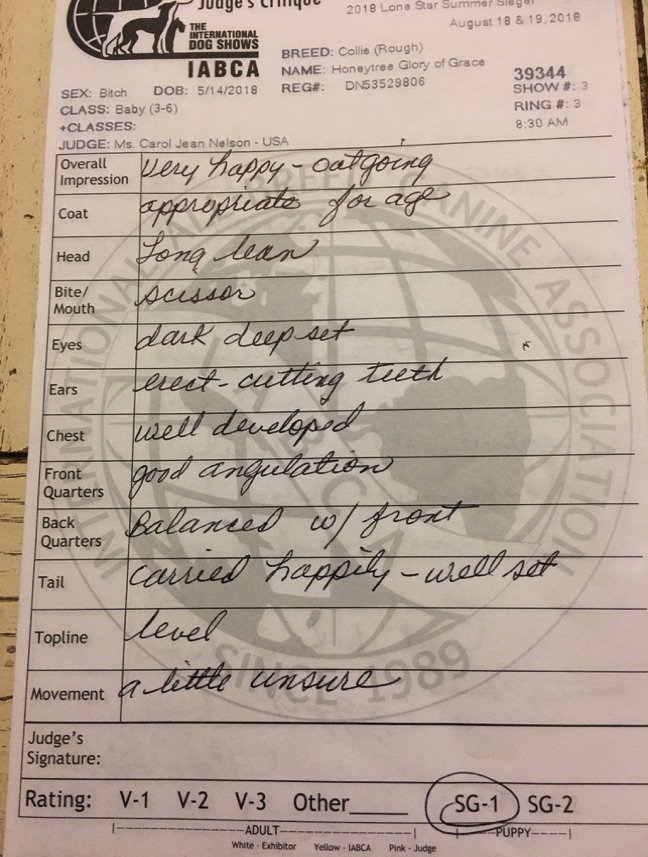 Judge's Critique
2018 Lone Star Summer Sieger
August 18 & 19, 2018
THE
INTERNATIONAL
DOG SHOWS
IABCA
BREED: Collie (Rough)
NAME: Honeytree Glory of Grace
39344
SEX: Bitch DOB: 5/14/2018 REG#: DN53529806 SHOW #: 3
CLASS: Baby (3-6) RING #: 3
+CLASSES: 8:30 AM
JUDGE: Ms. Carol Jean Nelson - USA
Overall Impression very happy - outgoing
Coat appropriate for age
Head Long lean
Bite/ Mouth scissor
Eyes dark deep set
Ears erect - cutting teeth
Chest well developed
Front Quarters good angulation
Back Quarters Balanced w/ front
Tail carried happily - well set
Topline level
Movement a little unsure
Judge's
Signature:
Rating: V-1 V-2 V-3 Other____ SG-1 SG-2
ADULT PUPPY
White - Exhibitor Yellow - IABCA Pink - Judge
INTERNATIONAL ALL BREED CANINE ASSOCIATION
SINCE 1989